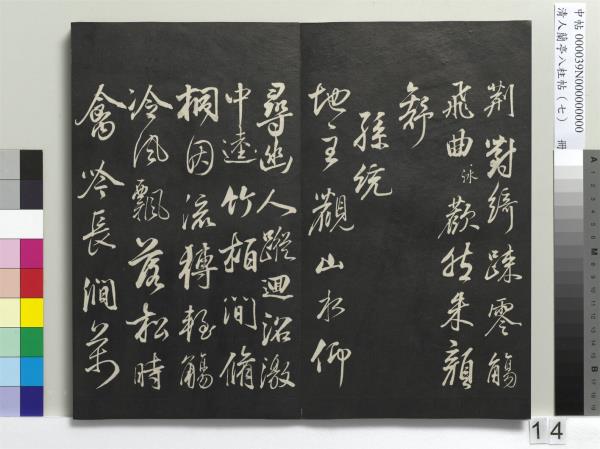 中帖 000039N000000000 冊
清人蘭亭八柱帖（七）
荆對綺疎零觴
飛曲詠歡然朱顏
舒
孫統
地主觀山水仰
尋幽人蹤迴沼激
中逵竹柏澗脩
桐因流轉輕觴
冷風飄落松時
禽吟長澗萬
14